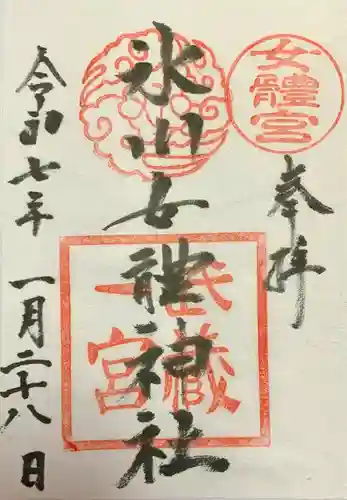 女體宮
奉拝
氷川女體神社
武蔵
一宮
令和七年 一月二十八日